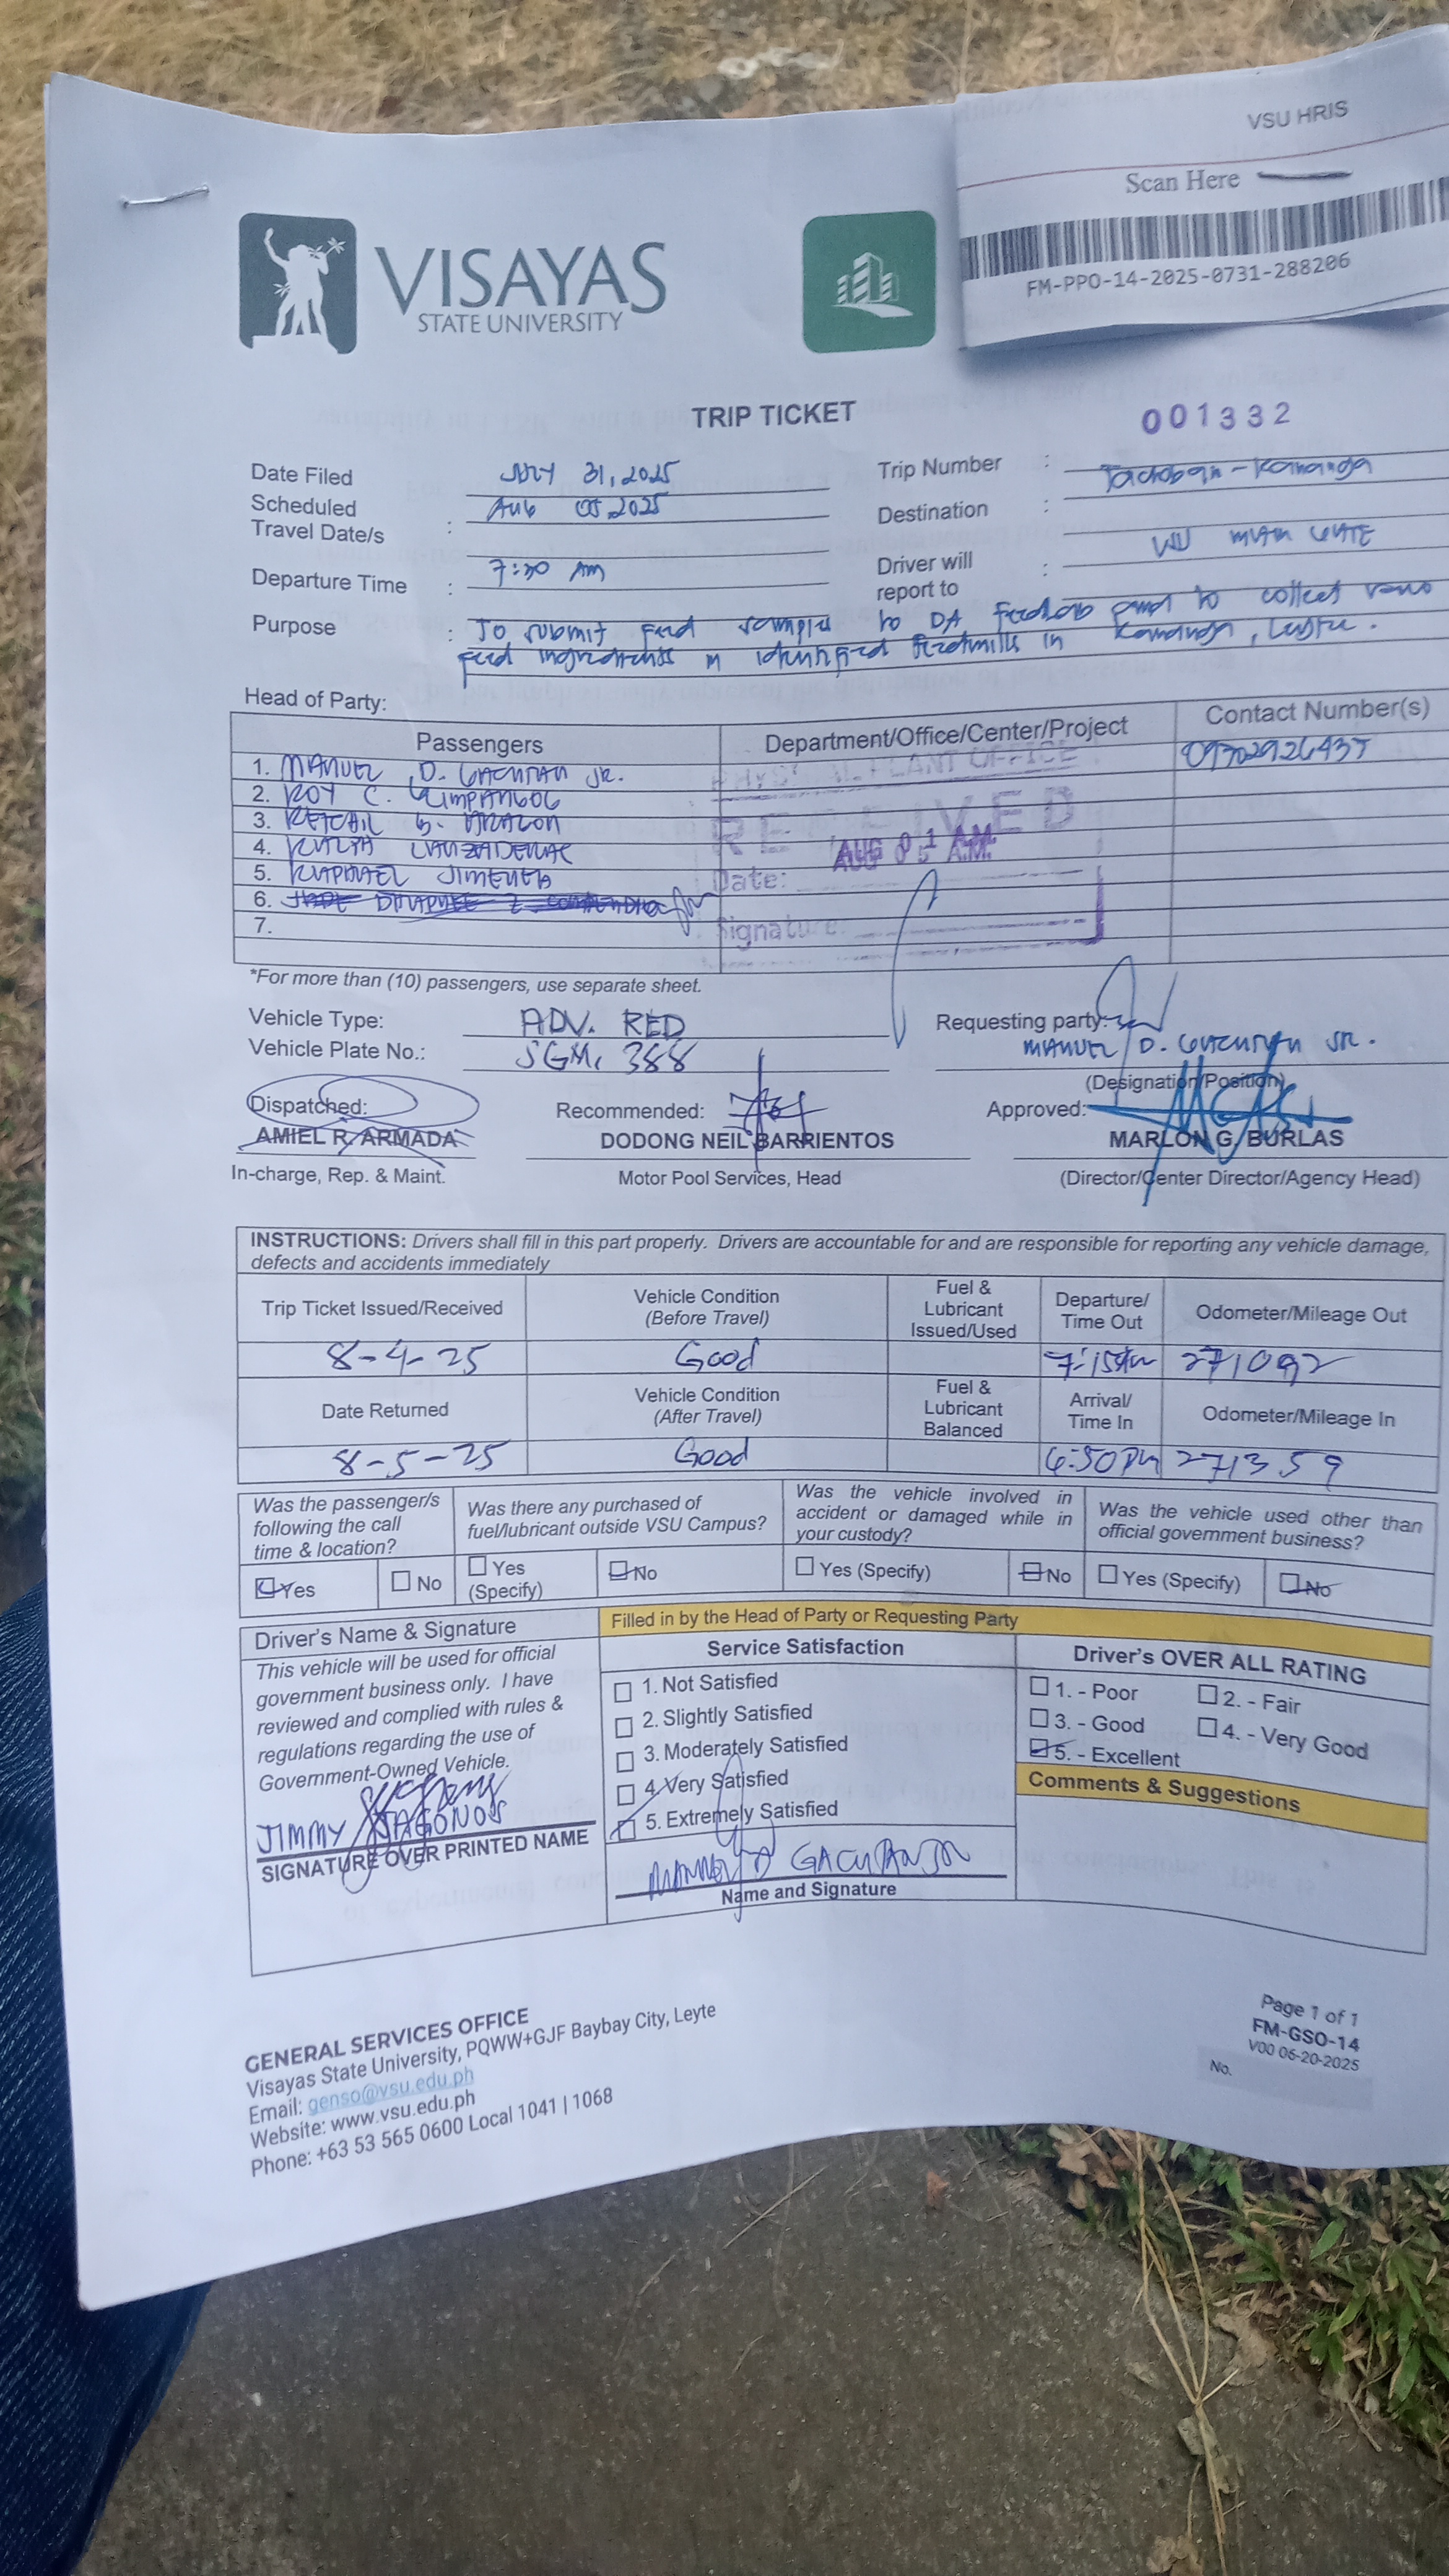 VSU HRIS
Scan Here
FM-PPO-14-2025-0731-288206
VISAYAS
STATE UNIVERSITY
TRIP TICKET
001332
Date Filed July 31, 2025
Trip Number :
Tacloban - Kananga
Scheduled
Travel Date/s : Aug 05, 2025
Destination :
Departure Time : 7:30 AM
Driver will
report to :
Purpose : To submit feed samples to DA feedlab and to collect
feed ingredients in identified feedmills in Kananga, Leyte.
Head of Party:
Passengers Department/Office/Center/Project Contact Number(s)
1. MANUEL D. GACUTAN JR.
2. ROY C.
3.
4.
5. RAPHAEL JIMENEZ
6.
7.
PHYSICAL PLANT OFFICE
RECEIVED
AUG 01 A.M.
Date:
Signature:
*For more than (10) passengers, use separate sheet.
Vehicle Type: ADV. RED
Requesting party:
Vehicle Plate No.: SGM, 388
MANUEL D. GACUTAN JR.
(Designation/Position)
Dispatched:
Recommended:
Approved:
AMIEL R. ARMADA
DODONG NEIL BARRIENTOS
MARLON G. BURLAS
In-charge, Rep. & Maint.
Motor Pool Services, Head
(Director/Center Director/Agency Head)
INSTRUCTIONS: Drivers shall fill in this part properly. Drivers are accountable for and are responsible for reporting any vehicle damage,
defects and accidents immediately
Trip Ticket Issued/Received
Vehicle Condition
(Before Travel)
Fuel &
Lubricant
Issued/Used
Departure/
Time Out
Odometer/Mileage Out
8-4-25 Good 7:15am 271092
Date Returned
Vehicle Condition
(After Travel)
Fuel &
Lubricant
Balanced
Arrival/
Time In
Odometer/Mileage In
8-5-25 Good 6:50pm 271359
Was the passenger/s
following the call
time & location?
Was there any purchased of
fuel/lubricant outside VSU Campus?
Was the vehicle involved in
accident or damaged while in
your custody?
Was the vehicle used other than
official government business?
Yes No
Yes
(Specify)
No
Yes (Specify) No
Yes (Specify) No
Driver's Name & Signature
This vehicle will be used for official
government business only. I have
reviewed and complied with rules &
regulations regarding the use of
Government-Owned Vehicle.
JIMMY
SIGNATURE OVER PRINTED NAME
Filled in by the Head of Party or Requesting Party
Service Satisfaction
1. Not Satisfied
2. Slightly Satisfied
3. Moderately Satisfied
4. Very Satisfied
5. Extremely Satisfied
MANUEL D GACUTAN JR
Name and Signature
Driver's OVER ALL RATING
1. - Poor 2. - Fair
3. - Good 4. - Very Good
5. - Excellent
Comments & Suggestions
GENERAL SERVICES OFFICE
Visayas State University, PQWW+GJF Baybay City, Leyte
Email: genso@vsu.edu.ph
Website: www.vsu.edu.ph
Phone: +63 53 565 0600 Local 1041 | 1068
Page 1 of 1
FM-GSO-14
V00 06-20-2025
No.